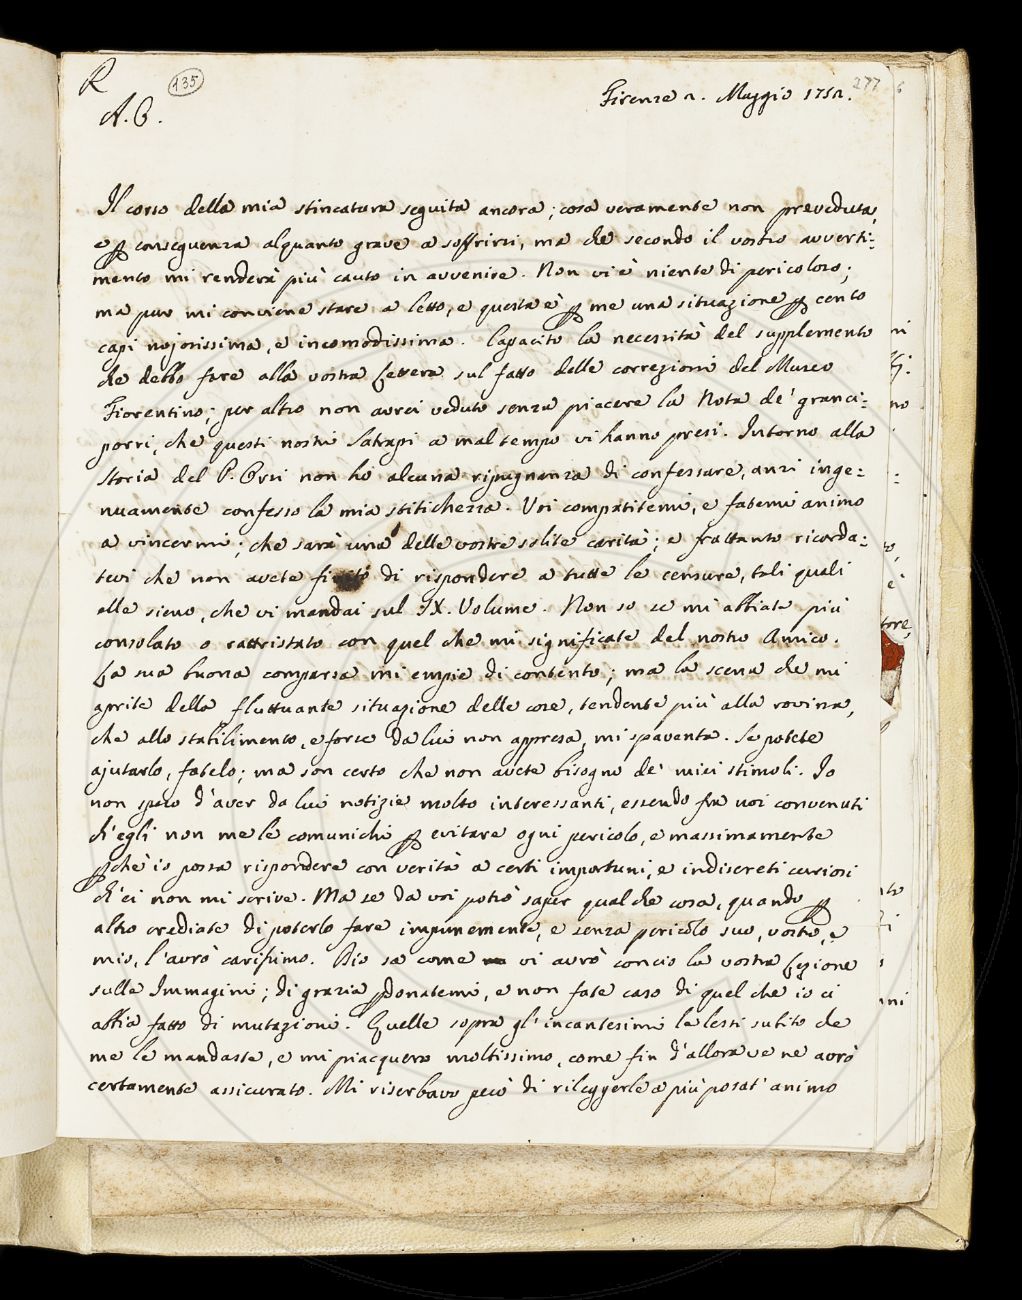 R
135
277
A. C.
Firenze 2. Maggio 1752.
Il corso della mia stincatura seguita ancora; cosa veramente non preveduta,
e p conseguenza alquanto grave a soffrirsi, ma che secondo il vostro avverti=
mento mi renderà più cauto in avvenire. Non vi è niente di pericoloso;
ma pur mi conviene stare a letto, e questa è p me una situazione p cento
capi nojosissima, e incomodissima. Capacito la necessità del supplemento
che debbo fare alla vostra Lettera sul fatto delle correzioni del Museo
Fiorentino; per altro non avrei veduto senza piacere la Nota de' granci=
porri, che questi nostri Satrapi a mal tempo vi hanno presi. Intorno alla
Storia del P. Orsi non ho alcuna ripugnanza di confessare, anzi inge=
nuamente confesso la mia stitichezza. Voi compatitemi, e fatemi animo
a vincermi; che sarà una delle vostre solite carità; e frattanto ricorda=
tevi che non avete di rispondere a tutte le censure, tali quali
elle sieno, che vi mandai sul IX. Volume. Non so se mi abbiate più
consolato o rattristato con quel che mi significate del nostro Amico.
La sua buona comparsa mi empie di contento; ma la scena che mi
aprite della fluttuante situazione delle cose, tendente più alla rovina,
che allo stabilimento, e forse da lui non appresa, mi spaventa. Se potete
ajutarlo, fatelo; ma son certo che non avete bisogno de' miei stimoli. Io
non spero d'aver da lui notizie molto interessanti, essendo fra noi convenuti
ch'egli non me le comunichi p evitare ogni pericolo, e massimamente
pchè io possa rispondere con verità a certi importuni, e indiscreti curiosi
ch'ei non mi scrive. Ma se da voi potrò saper qualche cosa, quando p
altro crediate di poterlo fare impunemente, e senza pericolo suo, vostro, e
mio, l'avrò carissimo. Dio sa come vi avrò concio la vostra Lezione
sulle Immagini; di grazia pdonatemi, e non fate caso di quel che io ci
abbia fatto di mutazioni. Quelle sopra gl'incantesimi le lessi subito che
me le mandaste, e mi piacquero moltissimo, come fin d'allora ve ne avrò
certamente assicurato. Mi riserbavo però di rileggerle a più posat' animo